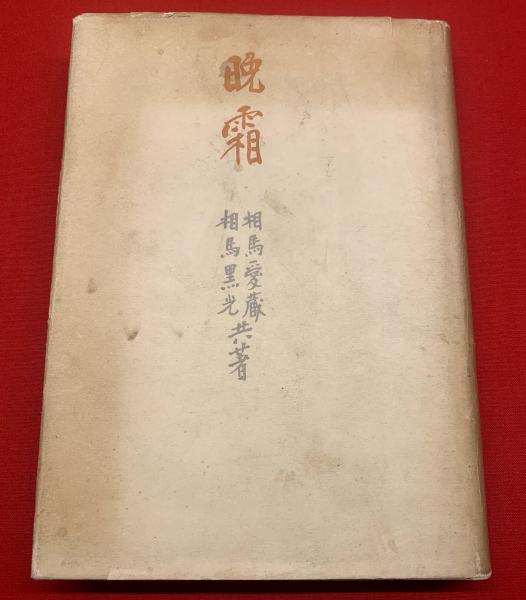 晩霜
相馬愛蔵
相馬黒光
共著